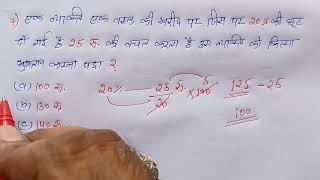 एक व्यक्ति एक वस्तु की खरीद पर जिस पर 20% की छूट
दी गई है 25 रु. की बचत करता है उस व्यक्ति को कितना
भुगतान करना पड़ा ?
(a) 100 रु. 20% 25 रु. 5
(b) 130 रु. 20 × 100 125 - 25
(c) 140 रु. 100